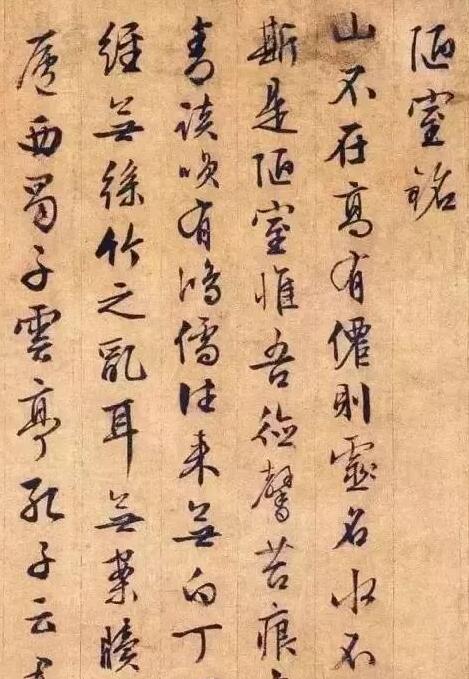 陋室銘
山不在高有僊則靈名水不
斯是陋室惟吾德馨苔痕
青談咲有鴻儒往来無白丁
經無絲竹之亂耳無案牘
廬西蜀子雲亭孔子云